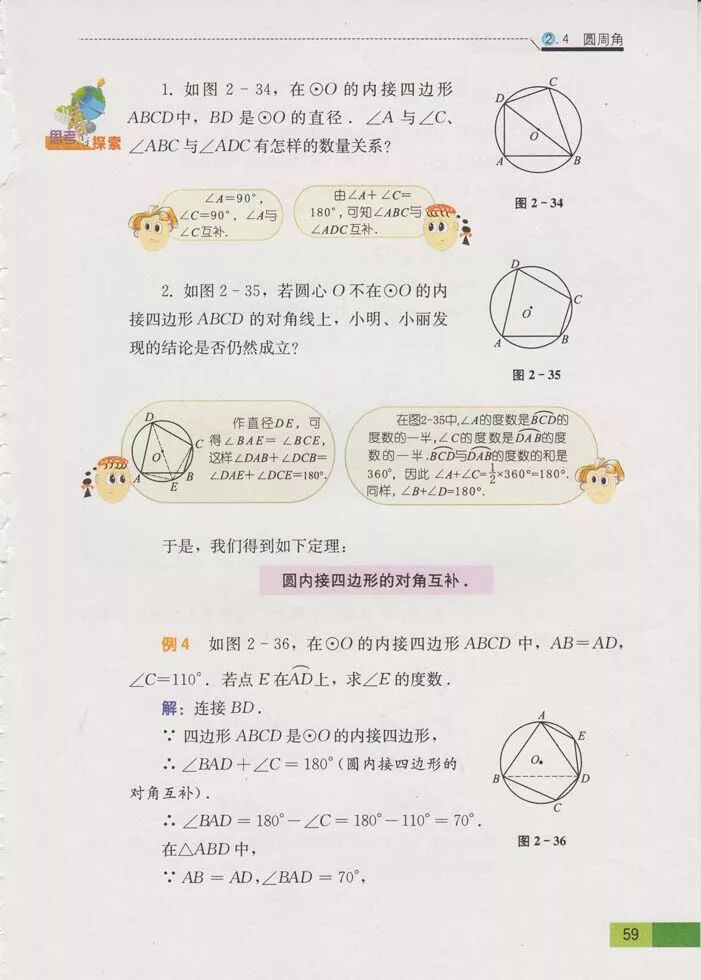 2.4 圆周角
思考与探索
1. 如图 2-34，在⊙O 的内接四边形
ABCD中，BD 是⊙O 的直径．∠A 与∠C、
∠ABC 与∠ADC 有怎样的数量关系？
D
C
O
A
B
图 2-34
∠A=90°，
∠C=90°，∠A与
∠C互补．
由∠A+∠C=
180°，可知∠ABC与
∠ADC互补．
2. 如图 2-35，若圆心 O 不在⊙O 的内
接四边形 ABCD 的对角线上，小明、小丽发
现的结论是否仍然成立？
D
C
O
A
B
图 2-35
D
C
O
A
B
E
作直径DE，可
得∠BAE=∠BCE，
这样∠DAB+∠DCB=
∠DAE+∠DCE=180°．
在图2-35中，∠A的度数是⌒BCD的
度数的一半，∠C的度数是⌒DAB的度
数的一半．⌒BCD与⌒DAB的度数的和是
360°，因此 ∠A+∠C=1/2×360°=180°．
同样，∠B+∠D=180°．
于是，我们得到如下定理：
圆内接四边形的对角互补．
例 4 如图 2-36，在⊙O 的内接四边形 ABCD 中，AB=AD，
∠C=110°．若点 E 在⌒AD上，求∠E 的度数．
解：连接 BD．
∵ 四边形 ABCD 是⊙O 的内接四边形，
∴ ∠BAD+∠C=180°(圆内接四边形的
对角互补)．
∴ ∠BAD=180°-∠C=180°-110°=70°．
在△ABD 中，
∵ AB=AD，∠BAD=70°，
A
E
O
B
D
C
图 2-36
59